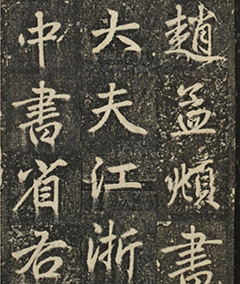 趙孟頫書
大夫江浙
中書省右